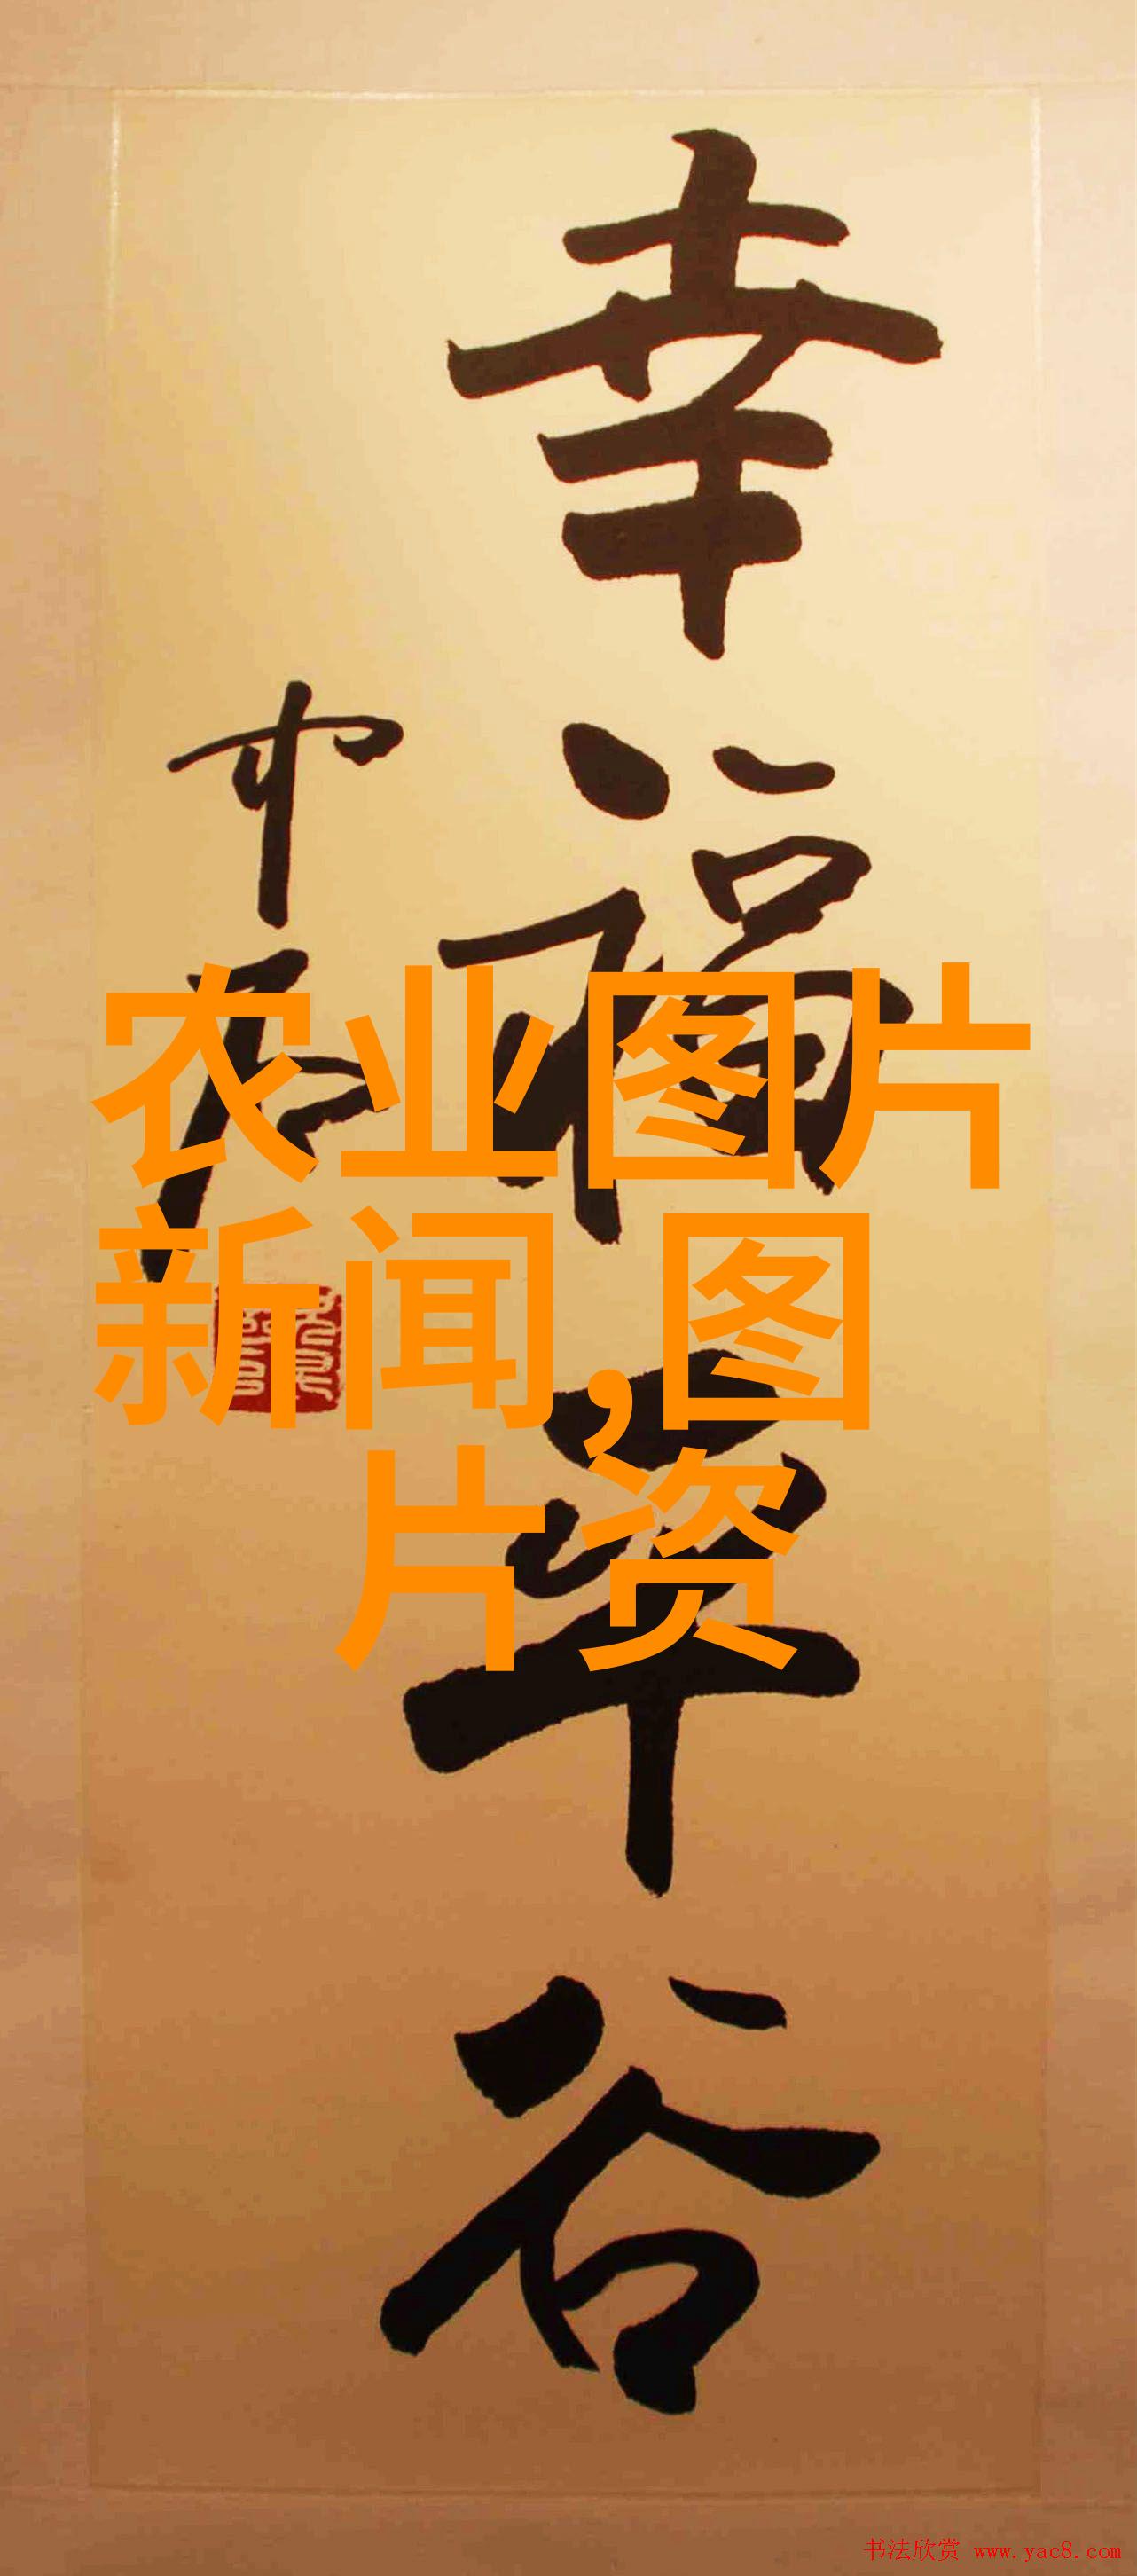 幸福平谷
中石
农业图片
新闻,图
片资
书法欣赏 www.yac8.com